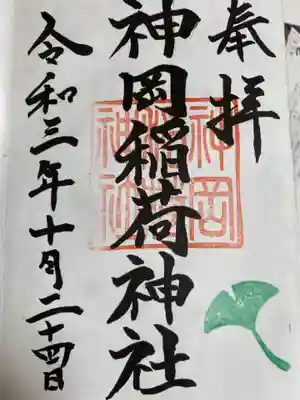 奉拝
神岡稲荷神社
令和三年十月二十四日
神岡稲荷神社